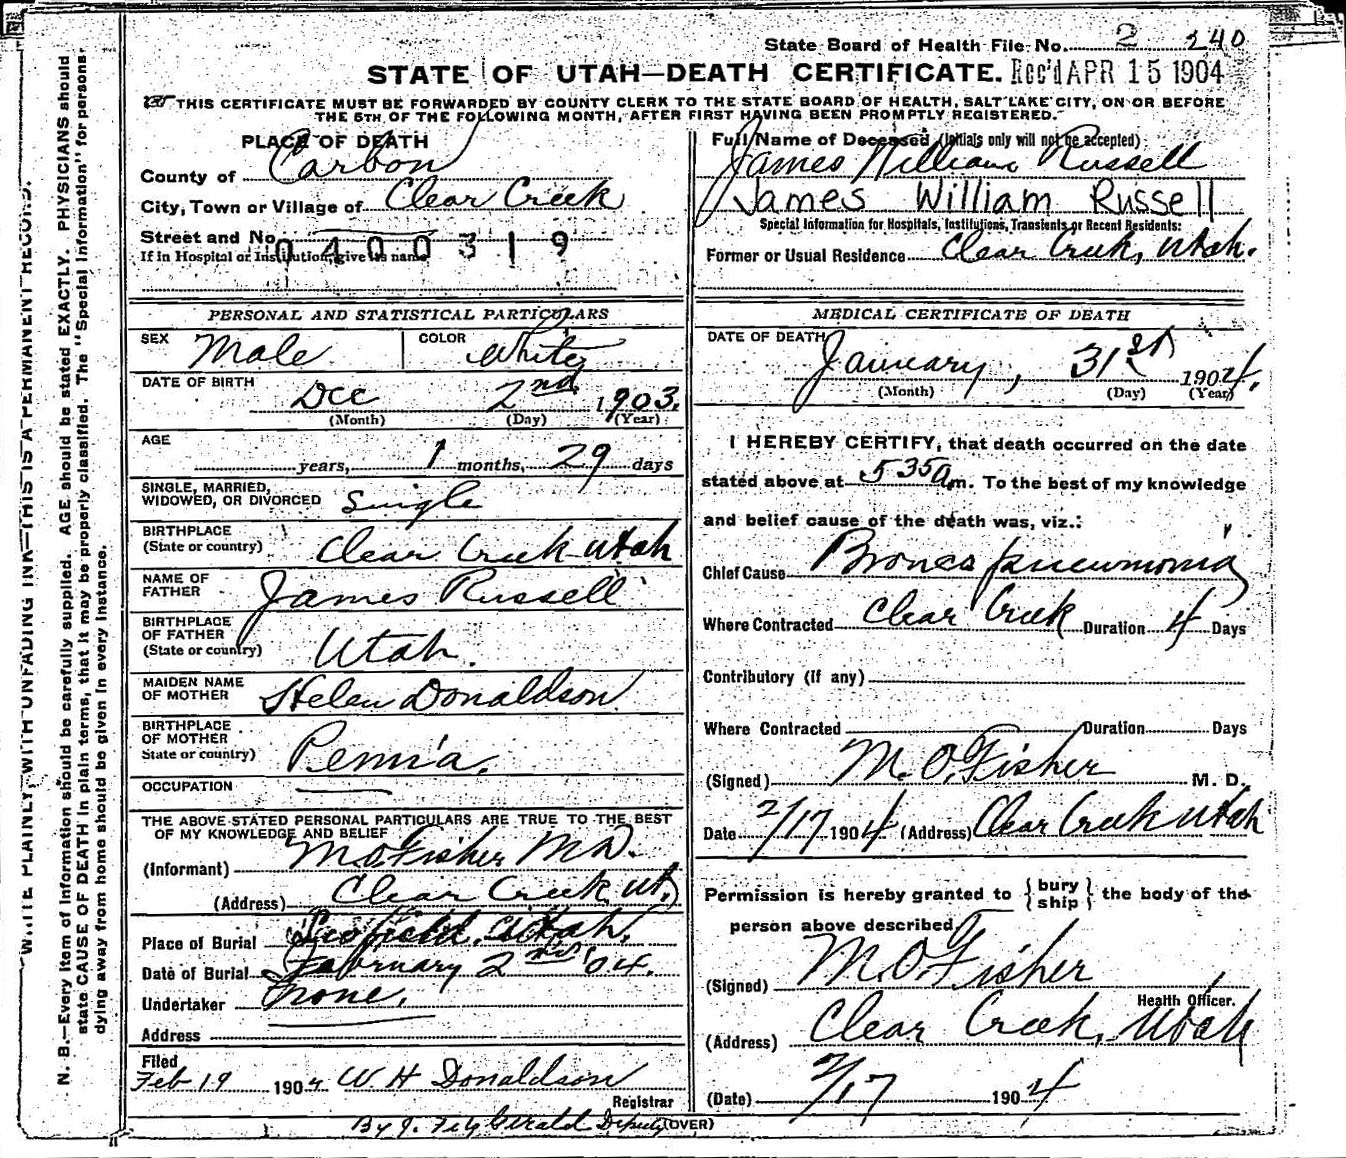 State Board of Health File No. 2 240
STATE OF UTAH—DEATH CERTIFICATE. Rec'd APR 15 1904
THIS CERTIFICATE MUST BE FORWARDED BY COUNTY CLERK TO THE STATE BOARD OF HEALTH, SALT LAKE CITY, ON OR BEFORE
THE 5TH OF THE FOLLOWING MONTH, AFTER FIRST HAVING BEEN PROMPTLY REGISTERED.
PLACE OF DEATH
County of Carbon
City, Town or Village of Clear Creek
Street and No.
0400319
If in Hospital or Institution, give its name
Full Name of Deceased (Initials only will not be accepted)
James William Russell
James William Russell
Special Information for Hospitals, Institutions, Transients or Recent Residents:
Former or Usual Residence Clear Creek, Utah.
PERSONAL AND STATISTICAL PARTICULARS
SEX Male COLOR White
DATE OF BIRTH
Dec 2nd 1903.
(Month) (Day) (Year)
AGE
years, 1 months, 29 days
SINGLE, MARRIED,
WIDOWED, OR DIVORCED Single
BIRTHPLACE
(State or country) Clear Creek Utah
NAME OF
FATHER James Russell
BIRTHPLACE
OF FATHER
(State or country) Utah.
MAIDEN NAME
OF MOTHER Helen Donaldson
BIRTHPLACE
OF MOTHER
State or country) Penn'a.
OCCUPATION
THE ABOVE STATED PERSONAL PARTICULARS ARE TRUE TO THE BEST
OF MY KNOWLEDGE AND BELIEF
(Informant) M.O. Fisher M.D.
(Address) Clear Creek, Ut.
Place of Burial Scofield, Utah.
Date of Burial February 2nd '04.
Undertaker none.
Address
Filed
Feb 19 1904 W H Donaldson
Registrar
By J. FitzGerald Deputy (OVER)
MEDICAL CERTIFICATE OF DEATH
DATE OF DEATH
January, 31st 1904.
(Month) (Day) (Year)
I HEREBY CERTIFY, that death occurred on the date
stated above at 5 35 a m. To the best of my knowledge
and belief cause of the death was, viz.:
Chief Cause Bronco pneumonia
Where Contracted Clear Creek Duration 4 Days
Contributory (if any)
Where Contracted Duration Days
(Signed) M.O. Fisher M. D.
Date 2/17 1904 (Address) Clear Creek Utah
Permission is hereby granted to {bury
ship} the body of the
person above described
(Signed) M.O. Fisher
Health Officer.
(Address) Clear Creek, Utah
(Date) 2/17 1904
WRITE PLAINLY, WITH UNFADING INK—THIS IS A PERMANENT RECORD.
N. B.—Every item of information should be carefully supplied. AGE should be stated EXACTLY. PHYSICIANS should
state CAUSE OF DEATH in plain terms, that it may be properly classified. The "Special Information" for persons
dying away from home should be given in every instance.